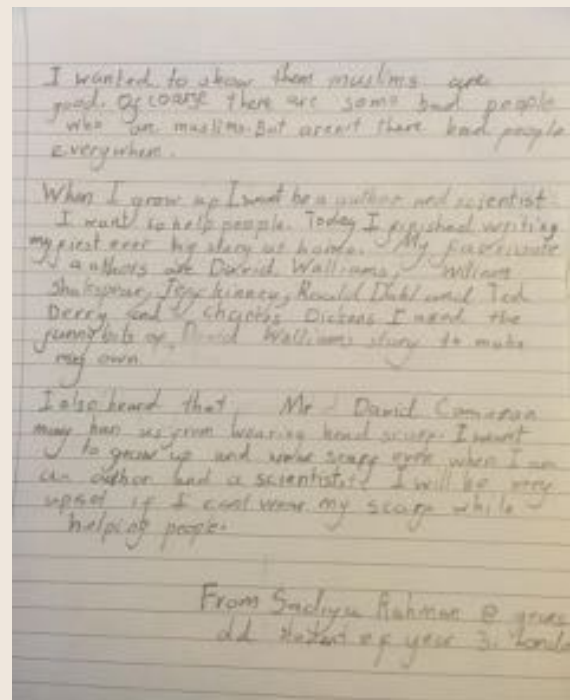 I wanted to show them muslims are
good. Of coarse there are some bad people
who are muslims. But aren't there bad people
everywhere.
When I grow up I want be a author and scientist
I want to help people. Today I finished writing
my first ever big story at home. My favourite
authors are David Walliams, William
Shakspear, Jeff kinney, Roald Dahl and Ted
Derry and Charles Dickens I need the
funny bits of David Walliams story to make
my own.
I also heard that Mr David Camaran
may ban us from wearing head scarf. I want
to grow up and wear scarf even when I am
an author and a scientist. I will be very
upset if I cant wear my scarf while
helping people.
From Sadiya Rahman
old of year 3.